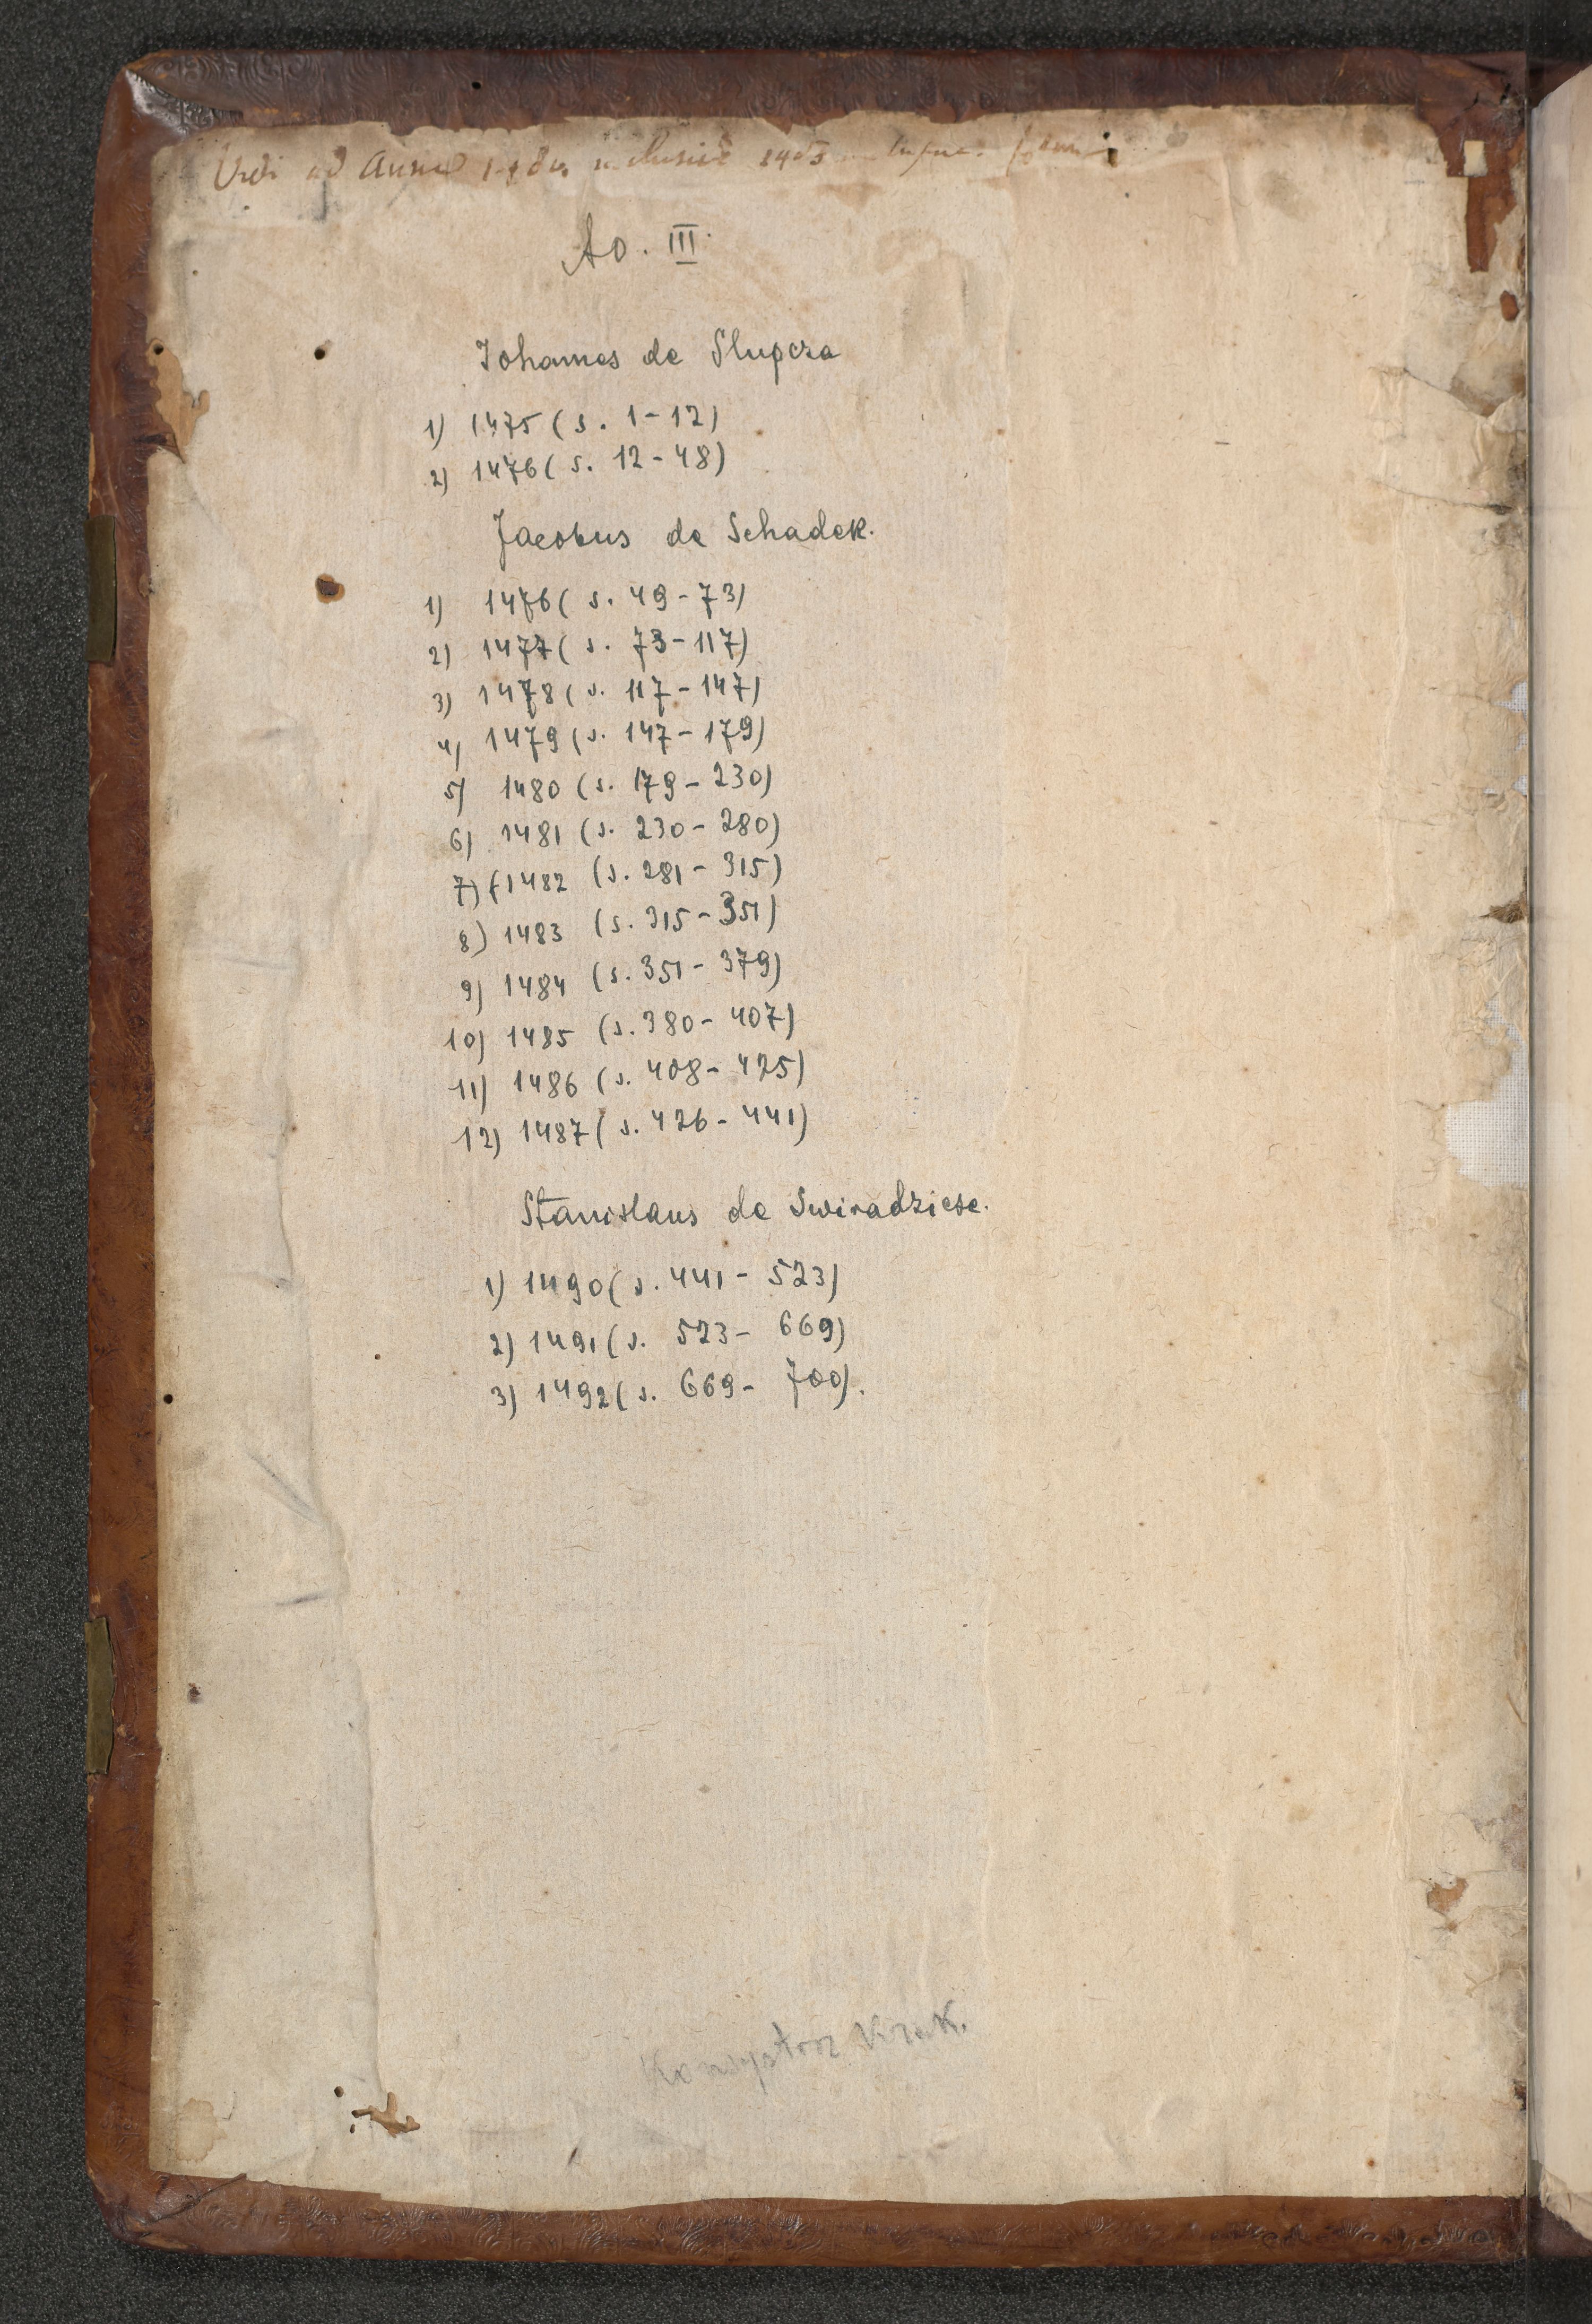 Vidi ad Annu
Ao. III.
Johannes de Slupcza
1) 1475 (s. 1-12)
2) 1476 (s. 12-48)
Jacobus de Schadek.
1) 1476 (s. 49-73)
2) 1477 (s. 73-117)
3) 1478 (s. 117-147)
4) 1479 (s. 147-179)
5) 1480 (s. 179-230)
6) 1481 (s. 230-280)
7) (1482 (s. 281-315)
8) 1483 (s. 315-351)
9) 1484 (s. 351-379)
10) 1485 (s. 380-407)
11) 1486 (s. 408-425)
12) 1487 (s. 426-441)
Stanislaus de Swiradzicze.
1) 1490 (s. 441-523)
2) 1491 (s. 523-669)
3) 1492 (s. 669-700).
Konsystorz Krak.